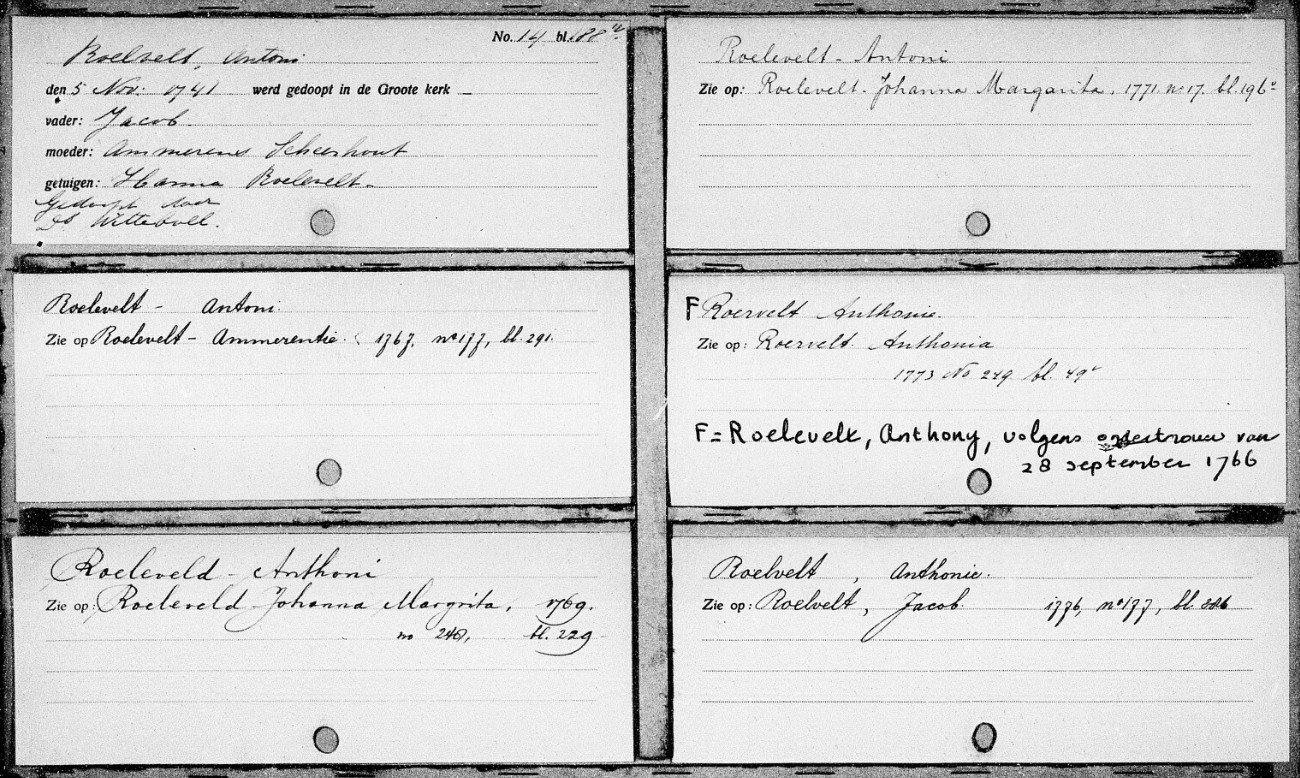 No. 14 bl. 188v.
Roelvelt, Antoni
den 5 Nov: 1741 werd gedoopt in de Groote kerk
vader: Jacob.
moeder: Ammerens Scheershout
getuigen: Hanna Roelevelt.
Gedoopt door
Ds Witteboll.
Roelevelt - Antoni
Zie op: Roelevelt - Johanna Margarita, 1771. no 17. bl. 196v
Roelevelt - Antoni.
Zie op Roelevelt - Ammerentie. 1767, no 177, bl. 291.
F Roervelt Anthonie.
Zie op: Roervelt Anthonia
1773 No 249 bl. 49v
F = Roelevelt, Anthony, volgens ondertrouw van
28 september 1766
Roeleveld - Anthoni
Zie op: Roeleveld Johanna Margrita, 1769.
no 248, bl. 229
Roelvelt, Anthonie.
Zie op: Roelvelt, Jacob. 1776, no 177, bl.